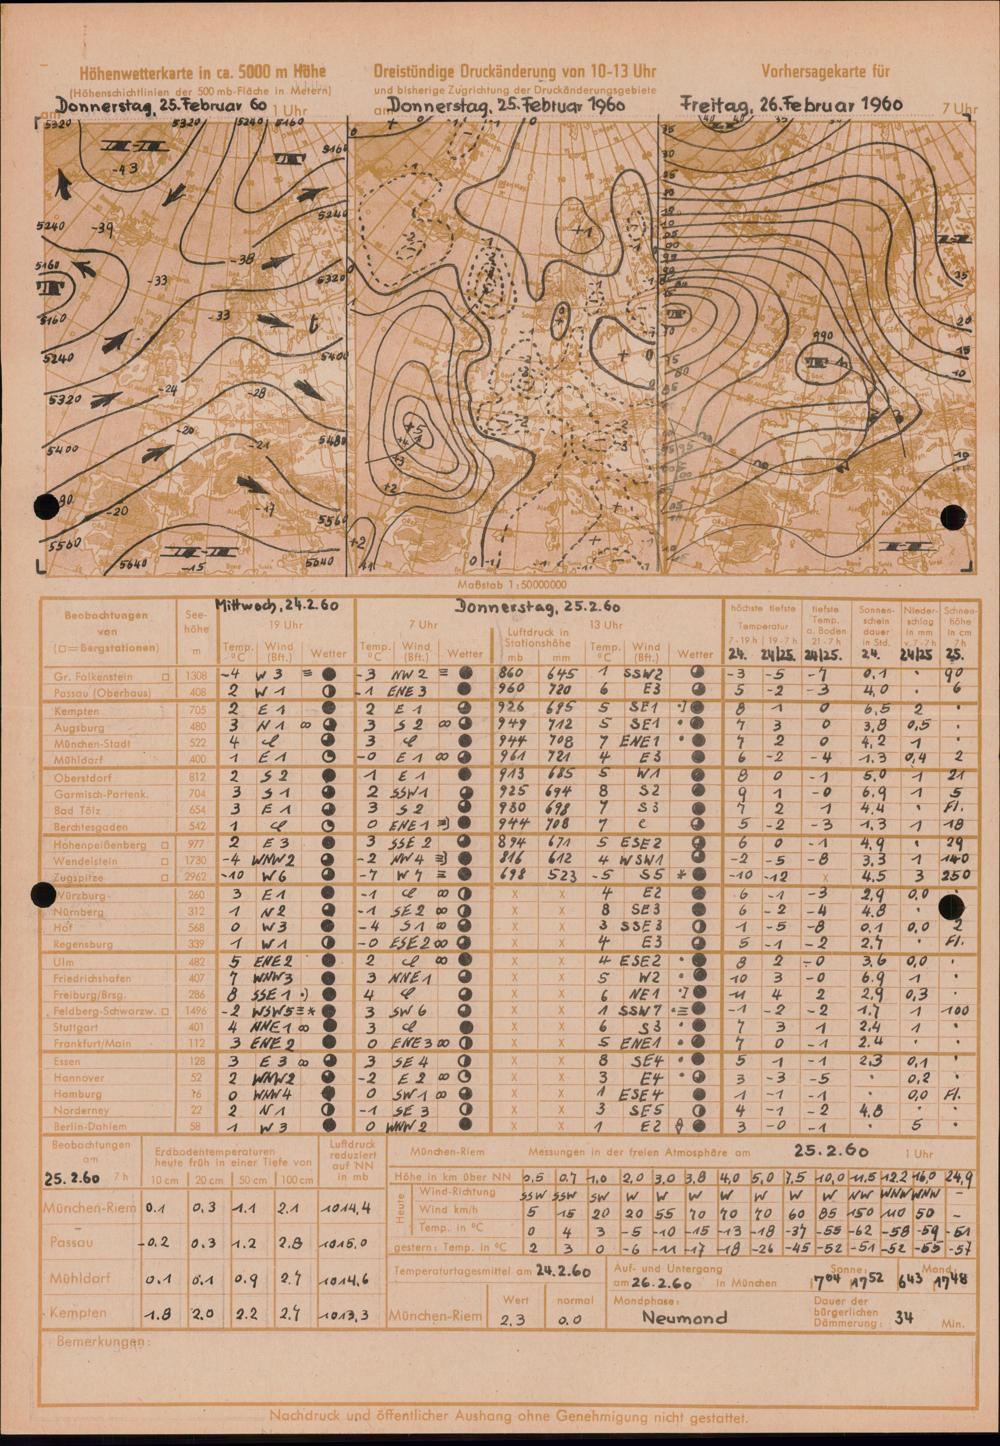 Höhenwetterkarte in ca. 5000 m Höhe
(Höhenschichtlinien der 500 mb-Fläche in Metern)
Donnerstag, 25. Februar 60 1 Uhr
Dreistündige Druckänderung von 10-13 Uhr
und bisherige Zugrichtung der Druckänderungsgebiete
am Donnerstag, 25. Februar 1960
Vorhersagekarte für
Freitag, 26. Februar 1960 7 Uhr
5320 5320 5240 5160
-43
5160
5240 -39 5240
-38
5160 -33 5320
5160 -33
5240 5400
5320 -24 -28
-20 -21 5480
5400
-20 -17 5560
5560 5640 -15 5640
990
Maßstab 1:50000000
Beobachtungen von (□ = Bergstationen)
Seehöhe m
Mittwoch, 24.2.60
19 Uhr
Temp. °C Wind (Bft.) Wetter
Donnerstag, 25.2.60
7 Uhr
Temp. °C Wind (Bft.) Wetter
13 Uhr
Luftdruck in Stationshöhe
mb mm Temp. °C Wind (Bft.) Wetter
höchste tiefste Temperatur
7-19 h 19-7 h
24. 24/25.
tiefste Temp. a. Boden 21-7 h
24/25.
Sonnenscheindauer in Std.
24.
Niederschlag in mm v. 7-7 h
24/25
Schneehöhe in cm 7h
25.
Gr. Falkenstein □ 1308 -4 W 3 ≡ -3 NW 2 ≡ 860 645 1 SSW2 -3 -5 -7 0.1 • 90
Passau (Oberhaus) 408 2 W 1 -1 ENE 3 960 720 6 E3 5 -2 -3 4,0 • 6
Kempten 705 2 E 1 2 E 1 926 695 5 SE1 8 1 0 6,5 2 •
Augsburg 480 3 N 1 ∞ 3 S 2 ∞ 949 712 5 SE1 • 7 3 0 3,8 0,5 •
München-Stadt 522 4 3 944 708 7 ENE1 • 7 2 0 4,2 1 •
Mühldorf 400 1 E 1 -0 E 1 ∞ 961 721 4 E3 6 -2 -4 1.3 0,4 2
Oberstdorf 812 2 S 2 1 E 1 913 685 5 W1 8 0 -1 5.0 1 21
Garmisch-Partenk. 704 3 S 1 2 SSW1 925 694 8 S2 9 1 -0 6.9 1 5
Bad Tölz 654 3 E 1 3 S 2 930 698 7 S3 7 2 1 4.4 • Fl.
Berchtesgaden 542 1 0 ENE 1 944 708 7 5 -2 -3 1,3 1 18
Hohenpeißenberg □ 977 2 E 3 3 SSE 2 894 671 5 ESE2 6 0 -1 4.9 • 29
Wendelstein □ 1730 -4 WNW2 -2 NW 4 816 612 4 WSW1 -2 -5 -8 3.3 1 140
Zugspitze □ 2962 -10 W6 -7 W 7 ≡ 698 523 -5 S5 * -10 -12 x 4.5 3 250
Würzburg 260 3 E1 -1 ∞ x x 4 E2 6 -1 -3 2,9 0,0
Nürnberg 312 1 N2 -1 SE 2 ∞ x x 8 SE3 6 -2 -4 4.8 •
Hof 568 0 W3 -4 S 1 ∞ x x 3 SSE3 1 -5 -8 0.1 0,0 2
Regensburg 339 1 W1 -0 ESE 2 ∞ x x 4 E3 5 -1 -2 2,7 • Fl.
Ulm 482 5 ENE2 2 ∞ x x 4 ESE2 • 8 2 -0 3,6 0,0 •
Friedrichshafen 407 7 WNW3 3 NNE1 x x 5 W2 • 10 3 -0 6.9 1 •
Freiburg/Brsg. 286 8 SSE 1 4 x x 6 NE1 11 4 2 2,9 0,3 •
Feldberg-Schwarzw. □ 1496 -2 WSW5 ≡* 3 SW 6 x x 1 SSW7 •≡ -1 -2 -2 1.7 1 100
Stuttgart 401 4 NNE1 ∞ 3 x x 6 S3 • 7 3 1 2.4 1 •
Frankfurt/Main 112 3 ENE2 0 ENE3 ∞ x x 5 ENE1 • 7 0 -1 2.4 •
Essen 128 3 E 3 ∞ 3 SE 4 x x 8 SE4 • 5 1 -1 2,3 0,1 •
Hannover 52 2 WNW2 -2 E 2 ∞ x x 3 E4 • 3 -3 -5 • 0,2 •
Hamburg 16 0 WNW4 0 SW 1 ∞ x x 1 ESE4 -1 -1 -1 • 0,0 Fl.
Norderney 22 2 N 1 -1 SE 3 x x 3 SE5 4 -1 -2 4,8 • •
Berlin-Dahlem 58 1 W 3 0 WNW 2 x x 1 E2 3 -0 -1 • 5 •
Beobachtungen am 25.2.60 7 h
Erdbodentemperaturen heute früh in einer Tiefe von
10 cm 20 cm 50 cm 100 cm
Luftdruck reduziert auf NN in mb
München-Riem 0.1 0,3 1.1 2.1 1014,4
Passau -0.2 0.3 1.2 2.8 1015,0
Mühldorf 0.1 0.1 0.9 2.7 1014,6
Kempten 1.8 2.0 2.2 2.7 1013,3
München-Riem Messungen in der freien Atmosphäre am 25.2.60 1 Uhr
Höhe in km über NN 0,5 0.7 1,0 2,0 3,0 3,8 4,0 5,0 7,5 10,0 11,5 12.2 16,0 24,9
Heute
Wind-Richtung SSW SSW SW W W W W W W W NW WNW WNW –
Wind km/h 5 15 20 20 55 70 70 70 60 85 150 110 50 –
Temp. in °C 0 4 3 -5 -10 -15 -13 -18 -37 -55 -62 -58 -59 -51
gestern: Temp. in °C 2 3 0 -6 -11 -17 -18 -26 -45 -52 -51 -52 -55 -57
Temperaturtagesmittel am 24.2.60
Wert normal
München-Riem 2.3 0.0
Auf- und Untergang am 26.2.60 in München
Sonne: 7 04 17 52
Mond: 6 43 17 48
Mondphase: Neumond
Dauer der bürgerlichen Dämmerung: 34 Min.
Bemerkungen:
Nachdruck und öffentlicher Aushang ohne Genehmigung nicht gestattet.